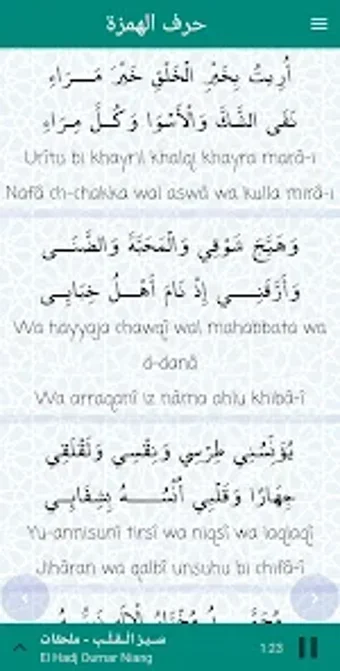 حرف الهمزة
أُرِيتُ بِخَيْرِ الْخَلْقِ خَيْرَ مَــرَاءِ
نَفَى الشَّكَّ وَالْأَسْوَا وَكُــلَّ مِـرَاءِ
Urîtu bi khayril khalqi khayra marâ-i
Nafâ ch-chakka wal aswâ wa kulla mirâ-i
وَهَيَّجَ شَوْقِي وَالْمَحَبَّةَ وَالضَّنَــى
وَأَرَّقَنِـــي إِذْ نَامَ أَهْــلُ خِبَايِــي
Wa hayyaja chawqî wal mahabbata wa
d-danâ
Wa arraqanî iz nâma ahlu khibâ-î
يُوَنِّسُنِي طِرْسِي وَنِقْسِي وَلَقْلَقِي
جِهَارًا وَقَلْبِي أُنْسُـــهُ بِشِفَايِــي
Yu-annisunî tirsî wa niqsî wa laqlaqî
Jihâran wa qalbî unsuhu bi chifâ-î
سير القلب - ملحقات
El Hadj Oumar Niang
1:23